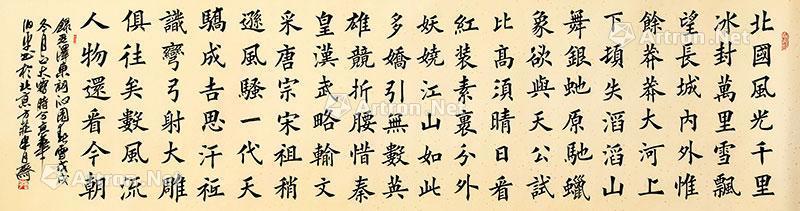 北國風光千里
冰封萬里雪飄
望長城內外惟
餘莽莽大河上
下頓失滔滔山
舞銀虵原馳蠟
象欲與天公試
比高須晴日看
紅裝素裹分外
妖嬈江山如此
多嬌引無數英
雄競折腰惜秦
皇漢武略輸文
采唐宗宋祖稍
遜風騷一代天
驕成吉思汗祗
識彎弓射大雕
俱往矣數風流
人物還看今朝
錄毛澤東詞沁園春雪
冬月
Artron.Net